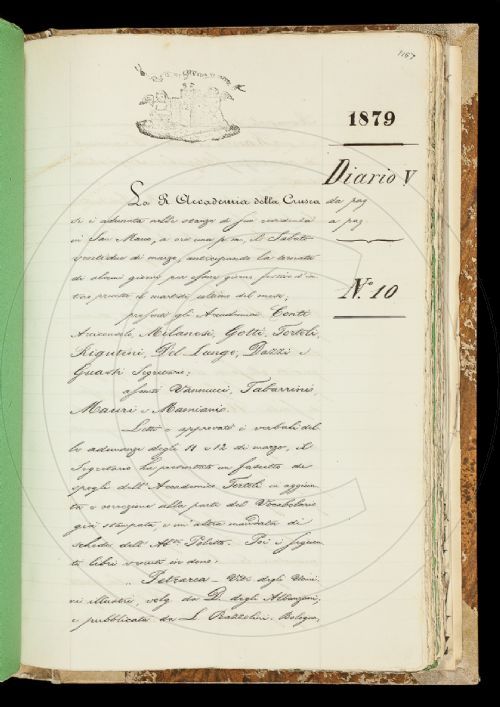 1167
1879
Diario V
da pag
a pag
N.º 10
La R. Accademia della Crusca
si è adunata nelle stanze di sua residenza
in San Marco, a ore una p. m., il Sabato
ventidue di marzo, anticipando la tornata
di alcuni giorni per essere giorno festivo d'in-
tero precetto il martedì ultimo del mese;
presenti gli Accademici Conti
Arciconsolo, Milanesi, Gotti, Tortoli,
Rigutini, Del Lungo, Dazzi e
Guasti Segretario;
assenti Vannucci, Tabarrini,
Mauri e Mamiani.
Letti e approvati i verbali del-
le adunanze degli 11 e 12 di marzo, il
Segretario ha presentato un fascetto di
spogli dell'Accademico Tortoli in aggiun-
ta e correzione alla parte del Vocabolario
già stampata, e un'altra mandata di
schede dell'Ab.te Poletto. Poi i seguen-
ti libri venuti in dono:
" Petrarca — Vite degli Uomi-
ni illustri, volg. da D. degli Albanzani,
e pubblicata da L. Razzolini. Bologna,